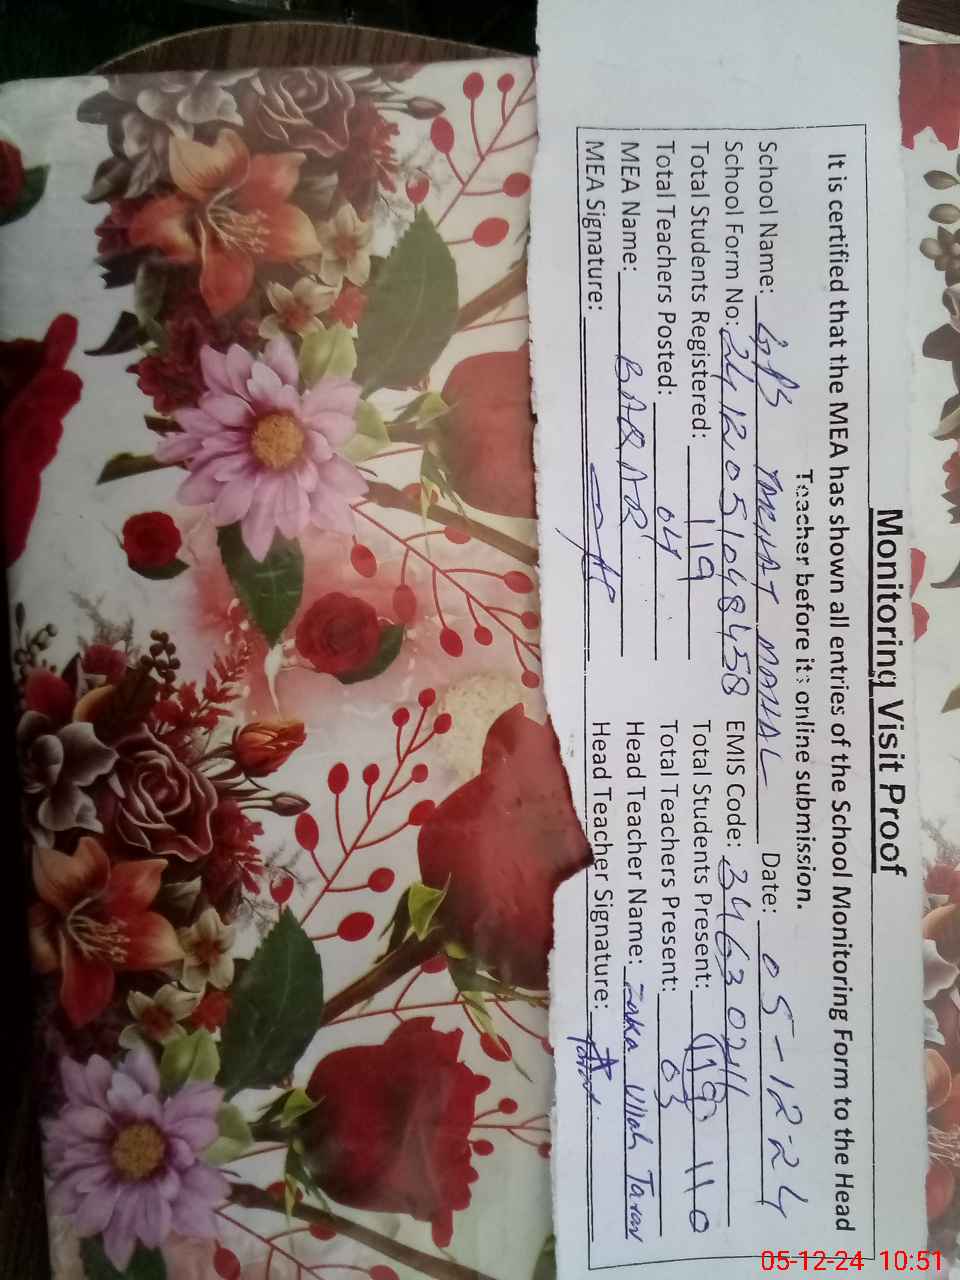 Monitoring Visit Proof
It is certified that the MEA has shown all entries of the School Monitoring Form to the Head
Teacher before its online submission.
School Name: GPS MAHAL Date: 05-12-24
School Form No: 2412051048458 EMIS Code: 34630211
Total Students Registered: 119 Total Students Present: 110
Total Teachers Posted: 04 Total Teachers Present: 03
MEA Name: BABAR Head Teacher Name: Zaka Ullah Tarar
MEA Signature: Head Teacher Signature:
05-12-24 10:51